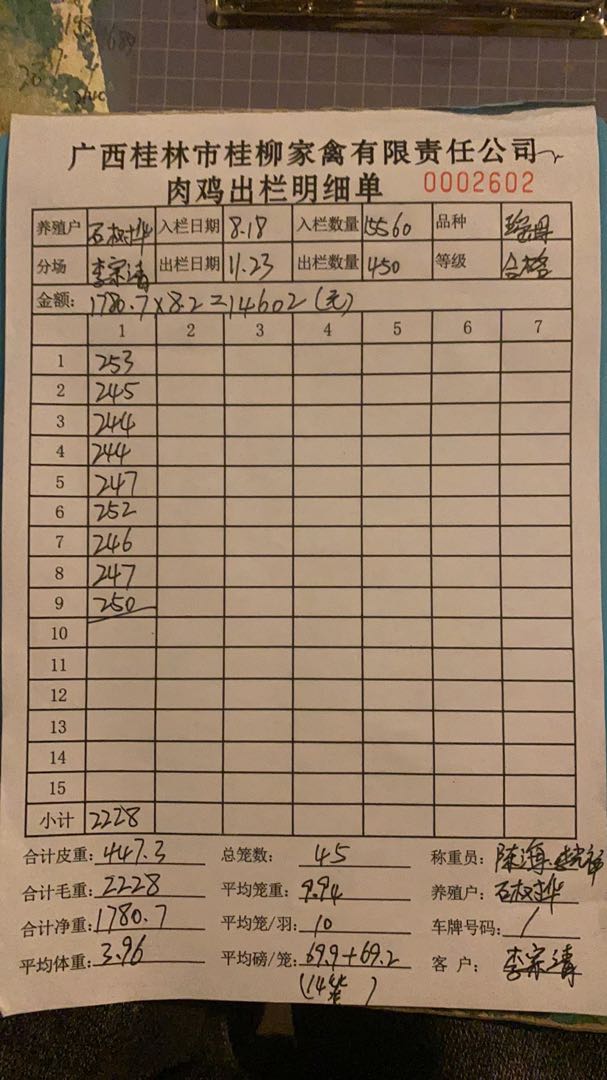 广西桂林市桂柳家禽有限责任公司
肉鸡出栏明细单 0002602
养殖户 石树华 入栏日期 8.18 入栏数量 15560 品种
分场 李宗清 出栏日期 11.23 出栏数量 450 等级 合格
金额: 1780.7×8.2=14602(元)
1 2 3 4 5 6 7
1 253
2 245
3 244
4 244
5 247
6 252
7 246
8 247
9 250
10
11
12
13
14
15
小计 2228
合计皮重: 447.3 总笼数: 45 称重员: 陈海
合计毛重: 2228 平均笼重: 9.94 养殖户: 石树华
合计净重: 1780.7 平均笼/羽: 10 车牌号码: /
平均体重: 3.96 平均磅/笼: 69.9+69.2 客户: 李宗清
(14笼)